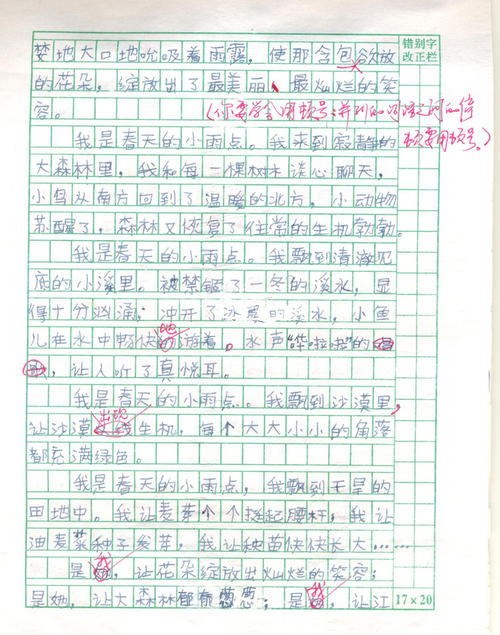 错别字
改正栏
婪地大口地吮吸着雨露，使那含包欲放
的花朵，绽放出了最美丽、最灿烂的笑
容。
(你要学会用顿号：并列的词语之间的停
顿要用顿号。)
我是春天的小雨点。我来到寂静的
大森林里，我和每一棵树木谈心聊天，
小鸟从南方回到了温暖的北方，小动物
苏醒了，森林又恢复了往常的生机勃勃。
我是春天的小雨点。我飘到清澈见
底的小溪里。被禁锢了一冬的溪水，显
得十分汹涌，冲开了冰冀的溪水，小鱼
儿在水中畅快地游着。水声“哗啦啦”的
，让人听了真悦耳。
我是春天的小雨点。我飘到沙漠里，
出现
让沙漠生机，每个大大小小的角落
都充满绿色。
我是春天的小雨点，我飘到干旱的
田地中。我让麦芽个个挺起腰杆，我让
油麦菜种子发芽，我让秧苗快快长大……
是我，让花朵绽放出灿烂的笑容；
是她，让大森林郁郁葱葱；是我，让江
17×20